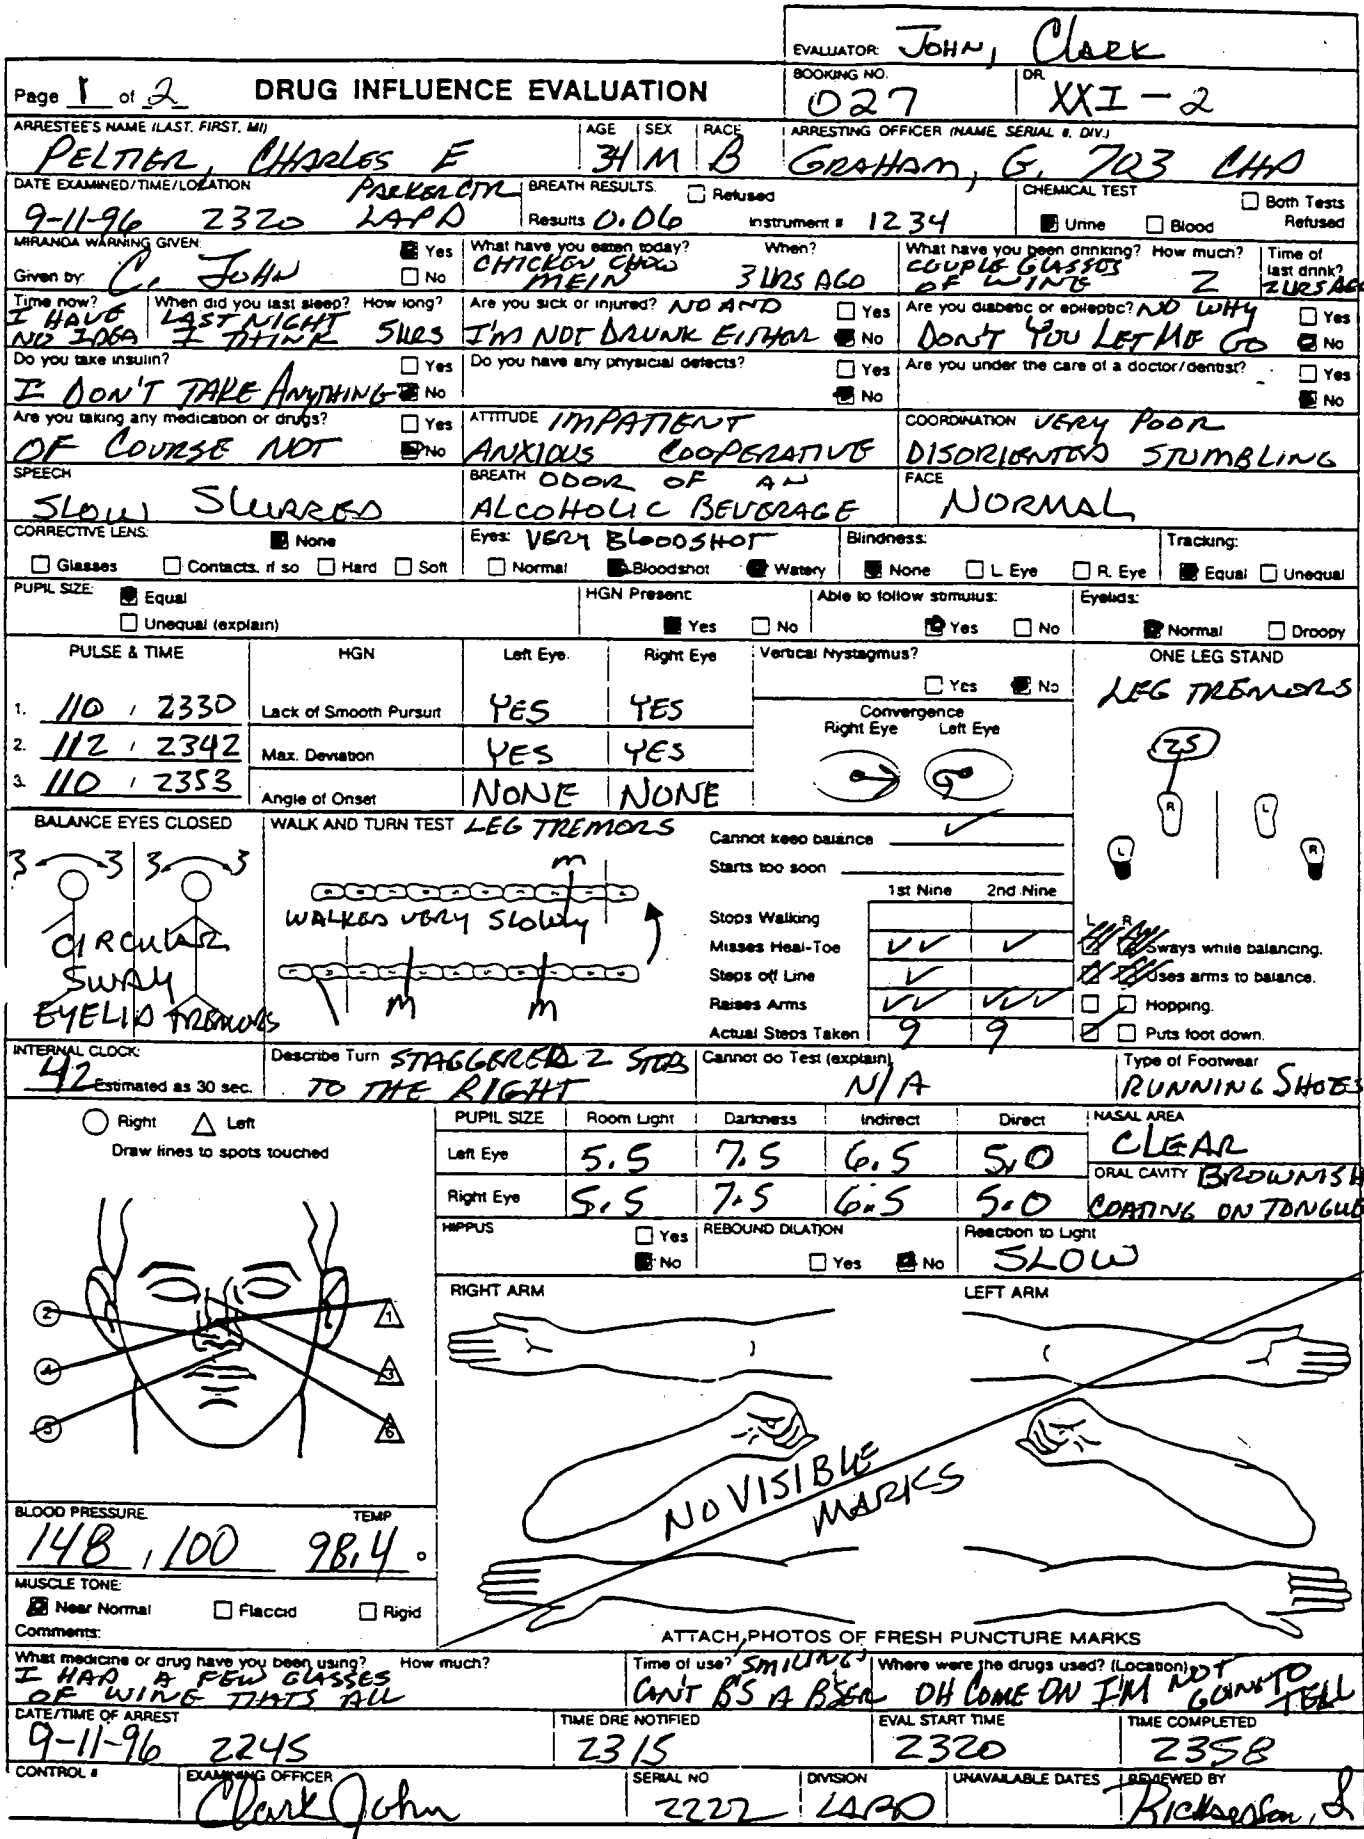 EVALUATOR: JOHN, Clark
Page 1 of 2 DRUG INFLUENCE EVALUATION
BOOKING NO. 027
DR. XXI-2
ARRESTEE'S NAME (LAST, FIRST, MI) PELTIER, CHARLES E
AGE 34 SEX M RACE B
ARRESTING OFFICER (NAME, SERIAL #, DIV.) GRAHAM, G. 703 CHP
DATE EXAMINED/TIME/LOCATION PARKER CTR
9-11-96 2320 LAPD
BREATH RESULTS: Refused
Results 0.06 Instrument # 1234
CHEMICAL TEST Urine Blood Both Tests Refused
MIRANDA WARNING GIVEN: Yes No
Given by: C. JOHN
What have you eaten today? When?
CHICKEN CHOW MEIN 3 HRS AGO
What have you been drinking? How much?
COUPLE GLASSES OF WINE 2
Time of last drink?
2 HRS AGO
Time now?
I HAVE NO IDEA
When did you last sleep? How long?
LAST NIGHT I THINK 5HRS
Are you sick or injured? NO AND Yes No
I'M NOT DRUNK EITHER
Are you diabetic or epileptic? NO WHY Yes No
DON'T YOU LET ME GO
Do you take insulin? Yes No
I DON'T TAKE ANYTHING
Do you have any physical defects? Yes No
Are you under the care of a doctor/dentist? Yes No
Are you taking any medication or drugs? Yes No
OF COURSE NOT
ATTITUDE IMPATIENT
ANXIOUS COOPERATIVE
COORDINATION VERY POOR
DISORIENTED STUMBLING
SPEECH
SLOW SLURRED
BREATH ODOR OF AN
ALCOHOLIC BEVERAGE
FACE
NORMAL
CORRECTIVE LENS: None
Glasses Contacts, if so Hard Soft
Eyes: VERY BLOODSHOT
Normal Bloodshot Watery
Blindness:
None L. Eye R. Eye
Tracking:
Equal Unequal
PUPIL SIZE: Equal
Unequal (explain)
HGN Present:
Yes No
Able to follow stimulus:
Yes No
Eyelids:
Normal Droopy
PULSE & TIME
1. 110 / 2330
2. 112 / 2342
3. 110 / 2353
HGN Left Eye Right Eye
Lack of Smooth Pursuit YES YES
Max. Deviation YES YES
Angle of Onset NONE NONE
Vertical Nystagmus?
Yes No
Convergence
Right Eye Left Eye
ONE LEG STAND
LEG TREMORS
25
R L
L R
BALANCE EYES CLOSED
3 3 3 3
CIRCULAR
SWAY
EYELID TREMORS
WALK AND TURN TEST LEG TREMORS
m
WALKED VERY SLOWLY
m m
Cannot keep balance ✓
Starts too soon
1st Nine 2nd Nine
Stops Walking
Misses Heal-Toe ✓✓ ✓
Steps off Line ✓
Raises Arms ✓✓ ✓✓✓
Actual Steps Taken 9 9
L R
Sways while balancing.
Uses arms to balance.
Hopping.
Puts foot down.
INTERNAL CLOCK:
42 Estimated as 30 sec.
Describe Turn STAGGERED 2 STEPS
TO THE RIGHT
Cannot do Test (explain)
N/A
Type of Footwear
RUNNING SHOES
Right Left
Draw lines to spots touched
2 1
4 3
5 6
PUPIL SIZE Room Light Darkness Indirect Direct
Left Eye 5.5 7.5 6.5 5.0
Right Eye 5.5 7.5 6.5 5.0
NASAL AREA
CLEAR
ORAL CAVITY BROWNISH
COATING ON TONGUE
HIPPUS Yes No
REBOUND DILATION
Yes No
Reaction to Light
SLOW
RIGHT ARM LEFT ARM
NO VISIBLE
MARKS
BLOOD PRESSURE TEMP
148 / 100 98.4 °
MUSCLE TONE:
Near Normal Flaccid Rigid
Comments:
ATTACH PHOTOS OF FRESH PUNCTURE MARKS
What medicine or drug have you been using? How much?
I HAD A FEW GLASSES
OF WINE THATS ALL
Time of use? SMILING,
CAN'T BS A BSER
Where were the drugs used? (Location)
OH COME ON I'M NOT GOING TO TELL
DATE/TIME OF ARREST
9-11-96 2245
TIME DRE NOTIFIED
2315
EVAL START TIME
2320
TIME COMPLETED
2358
CONTROL #
EXAMINING OFFICER
Clark John
SERIAL NO
2222
DIVISION
LAPD
UNAVAILABLE DATES
REVIEWED BY